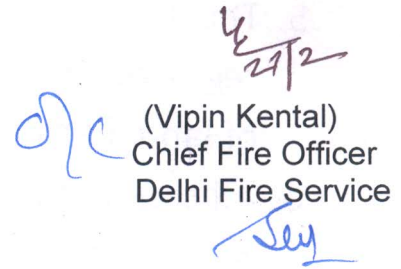 21/2
(Vipin Kental)
Chief Fire Officer
Delhi Fire Service